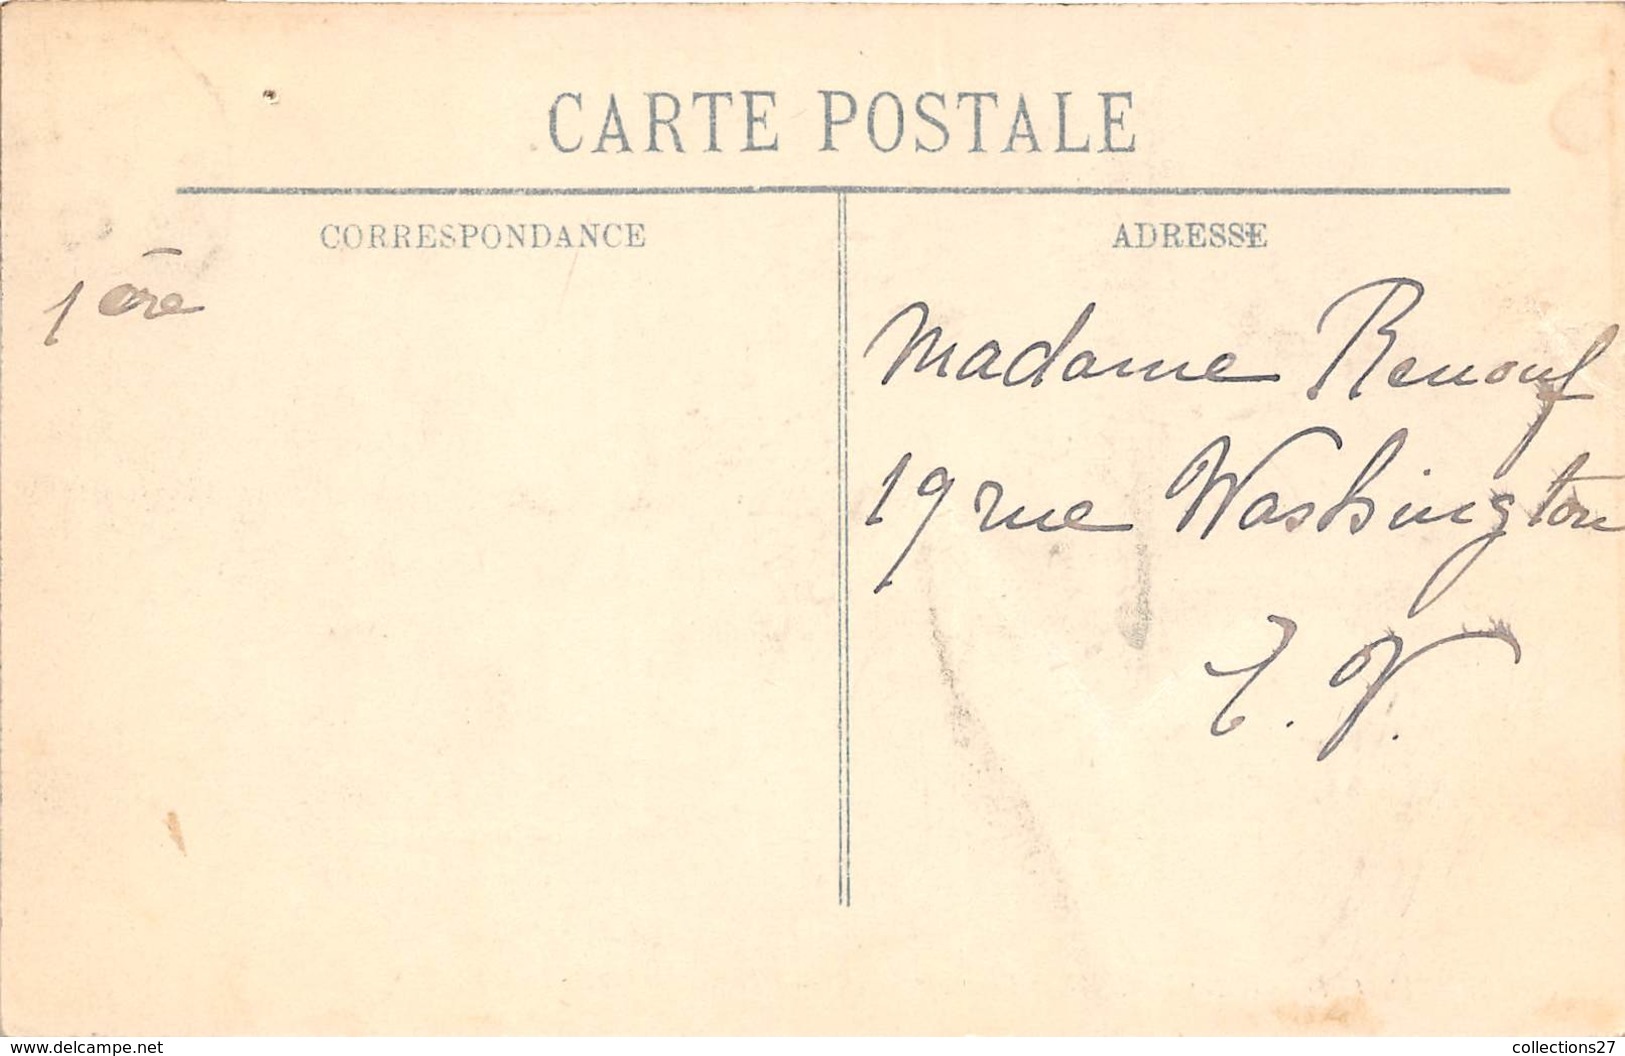 CARTE POSTALE
CORRESPONDANCE
ADRESSE
1ère
Madame Renouf
19 rue Washington
E. V.
www.delcampe.net
collections27